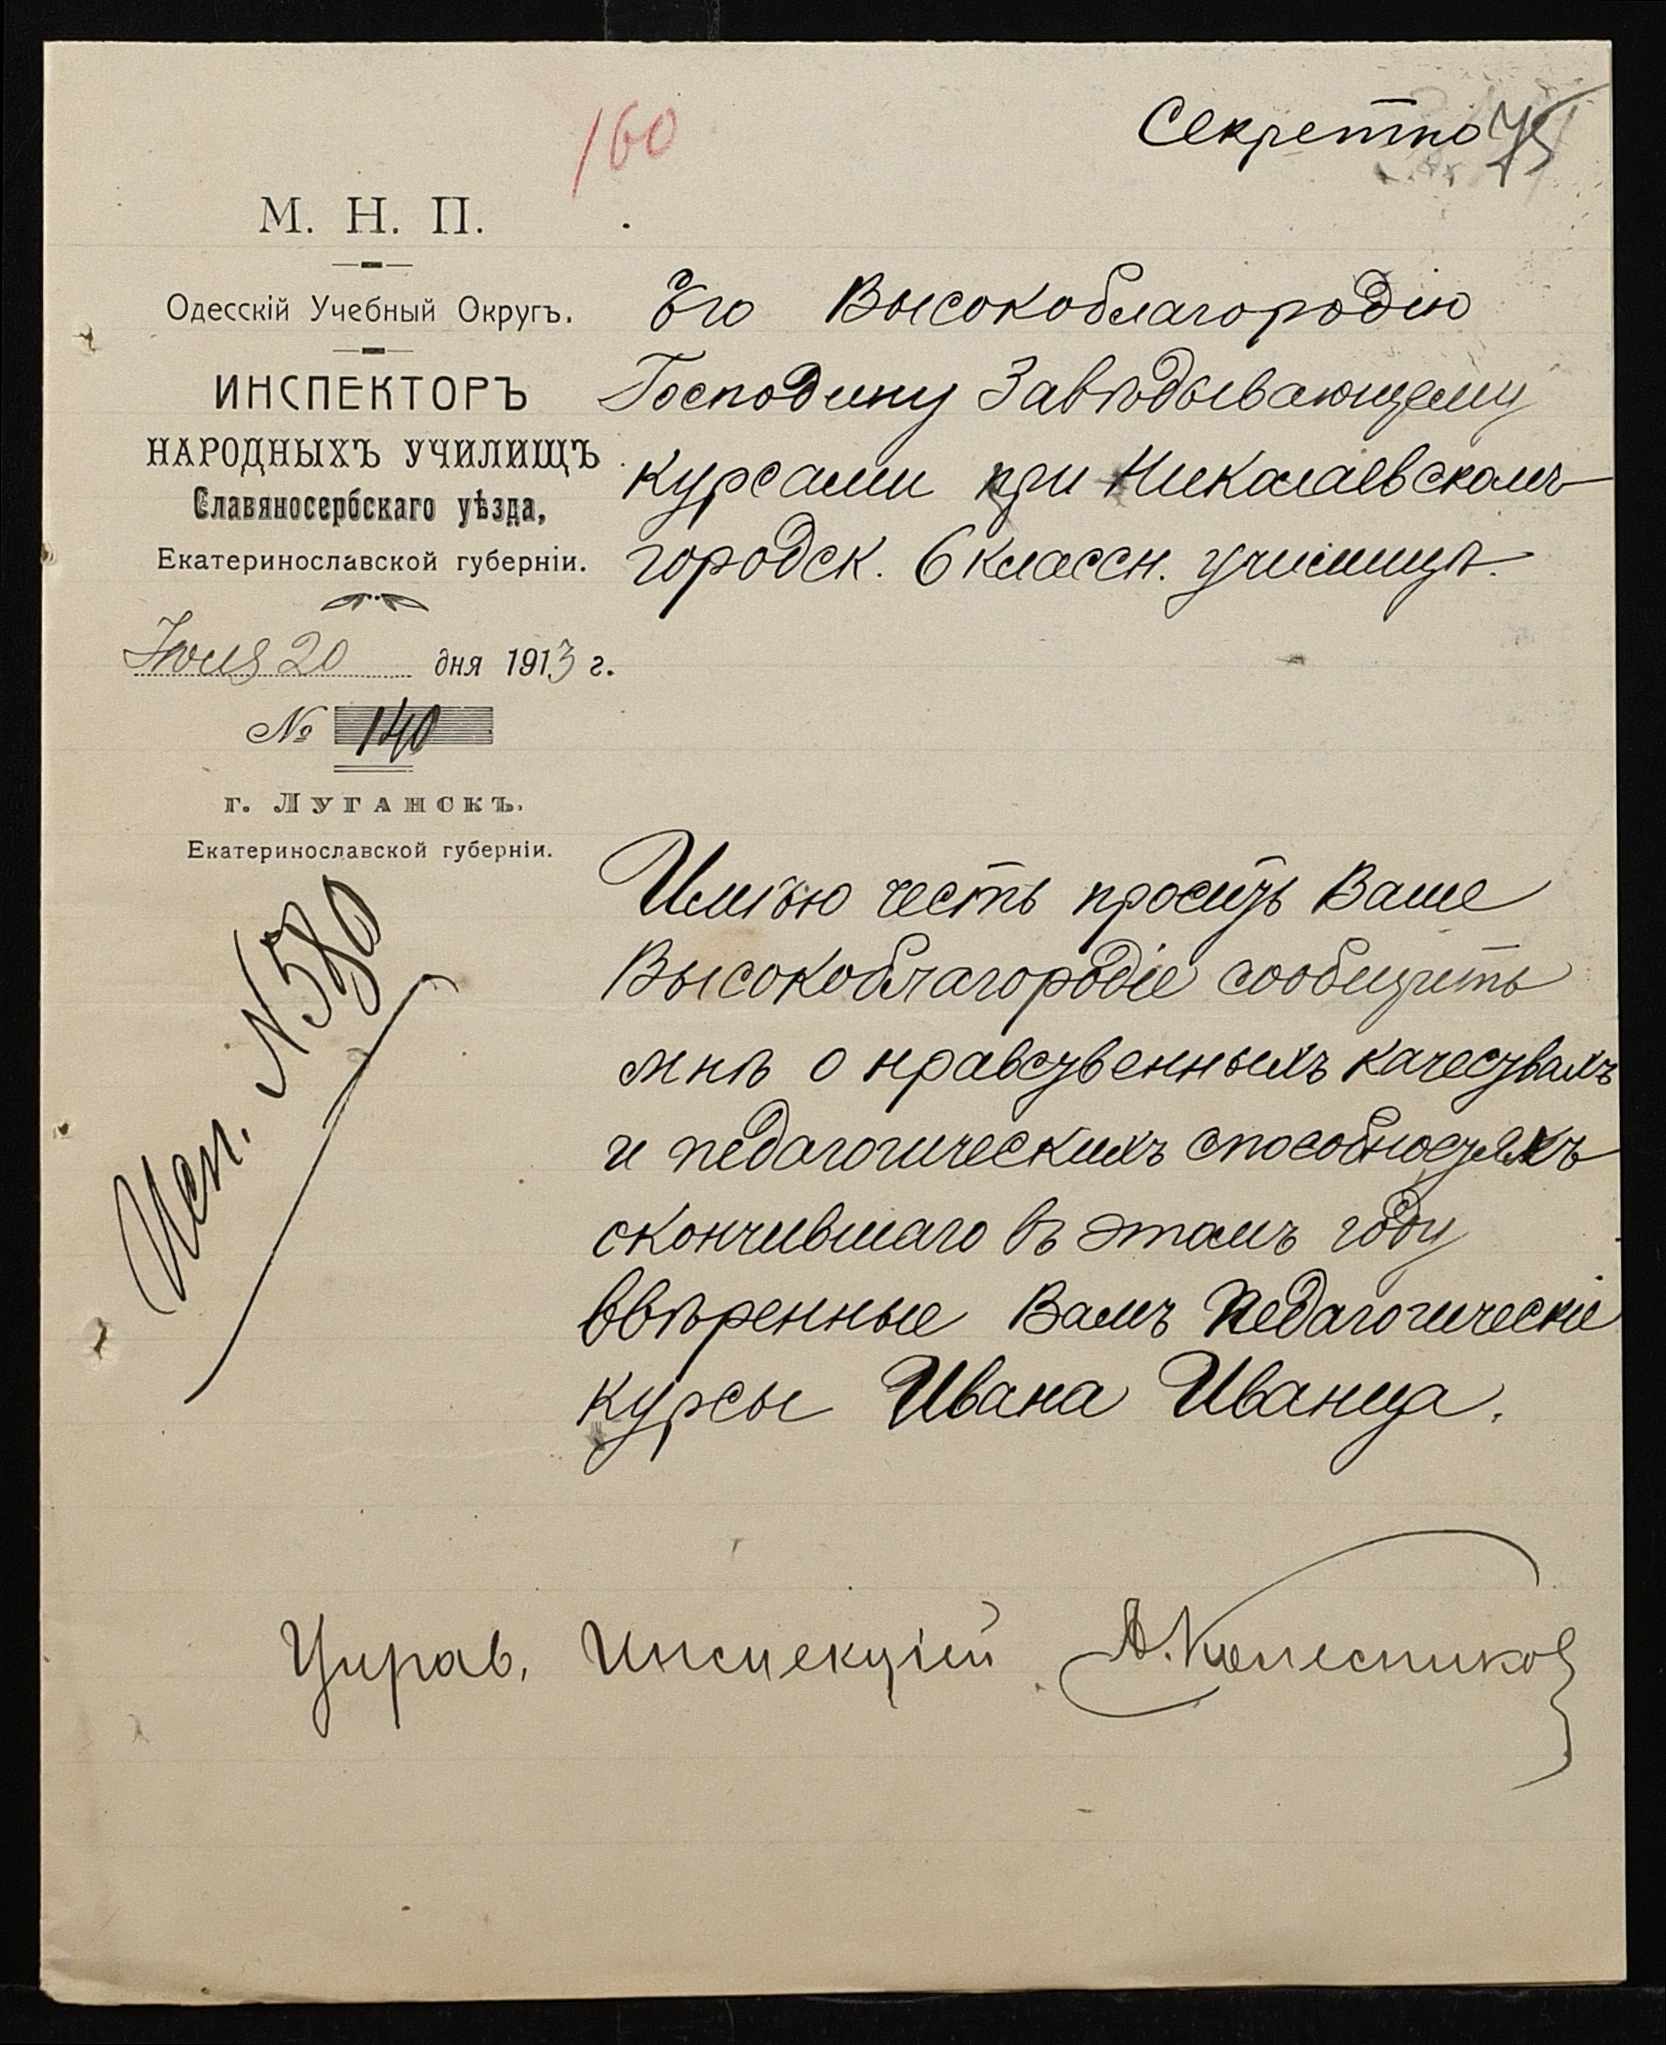 160
Секретно
75
М. Н. П.
Одесскій Учебный Округъ.
ИНСПЕКТОРЪ
НАРОДНЫХЪ УЧИЛИЩЪ
Славяносербскаго уѣзда,
Екатеринославской губерніи.
20 дня 1913 г.
№ 140
г. ЛУГАНСКЪ.
Екатеринославской губерніи.
Исп. N 580
Его Высокоблагородію
Господину Завѣдывающему
курсами при Николаевскомъ
городск. 6 классн. училищѣ.
Имѣю честь просить Ваше
Высокоблагородіе сообщить
мнѣ о нравственныхъ качествахъ
и педагогическихъ способностяхъ
скончившаго въ этомъ году
ввѣренные Вамъ Педагогическіе
курсы Ивана Иванца.
Управ. Инспекціей А. Колесников